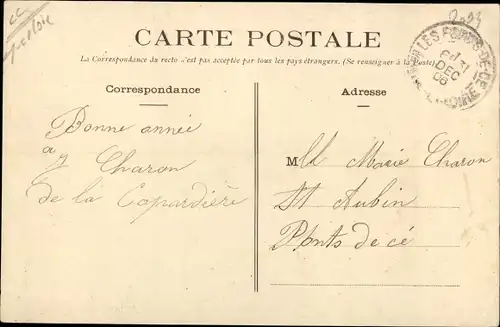 CARTE POSTALE
La Correspondance du recto n'est pas acceptée par tous les pays étrangers. (Se renseigner à la Poste)
Correspondance
Adresse
LES PONTS-DE-CÉ
DEC
06
Bonne année
à
J Charon
de la Copardière
Mll Marie Charon
St Aubin
Ponts de cé